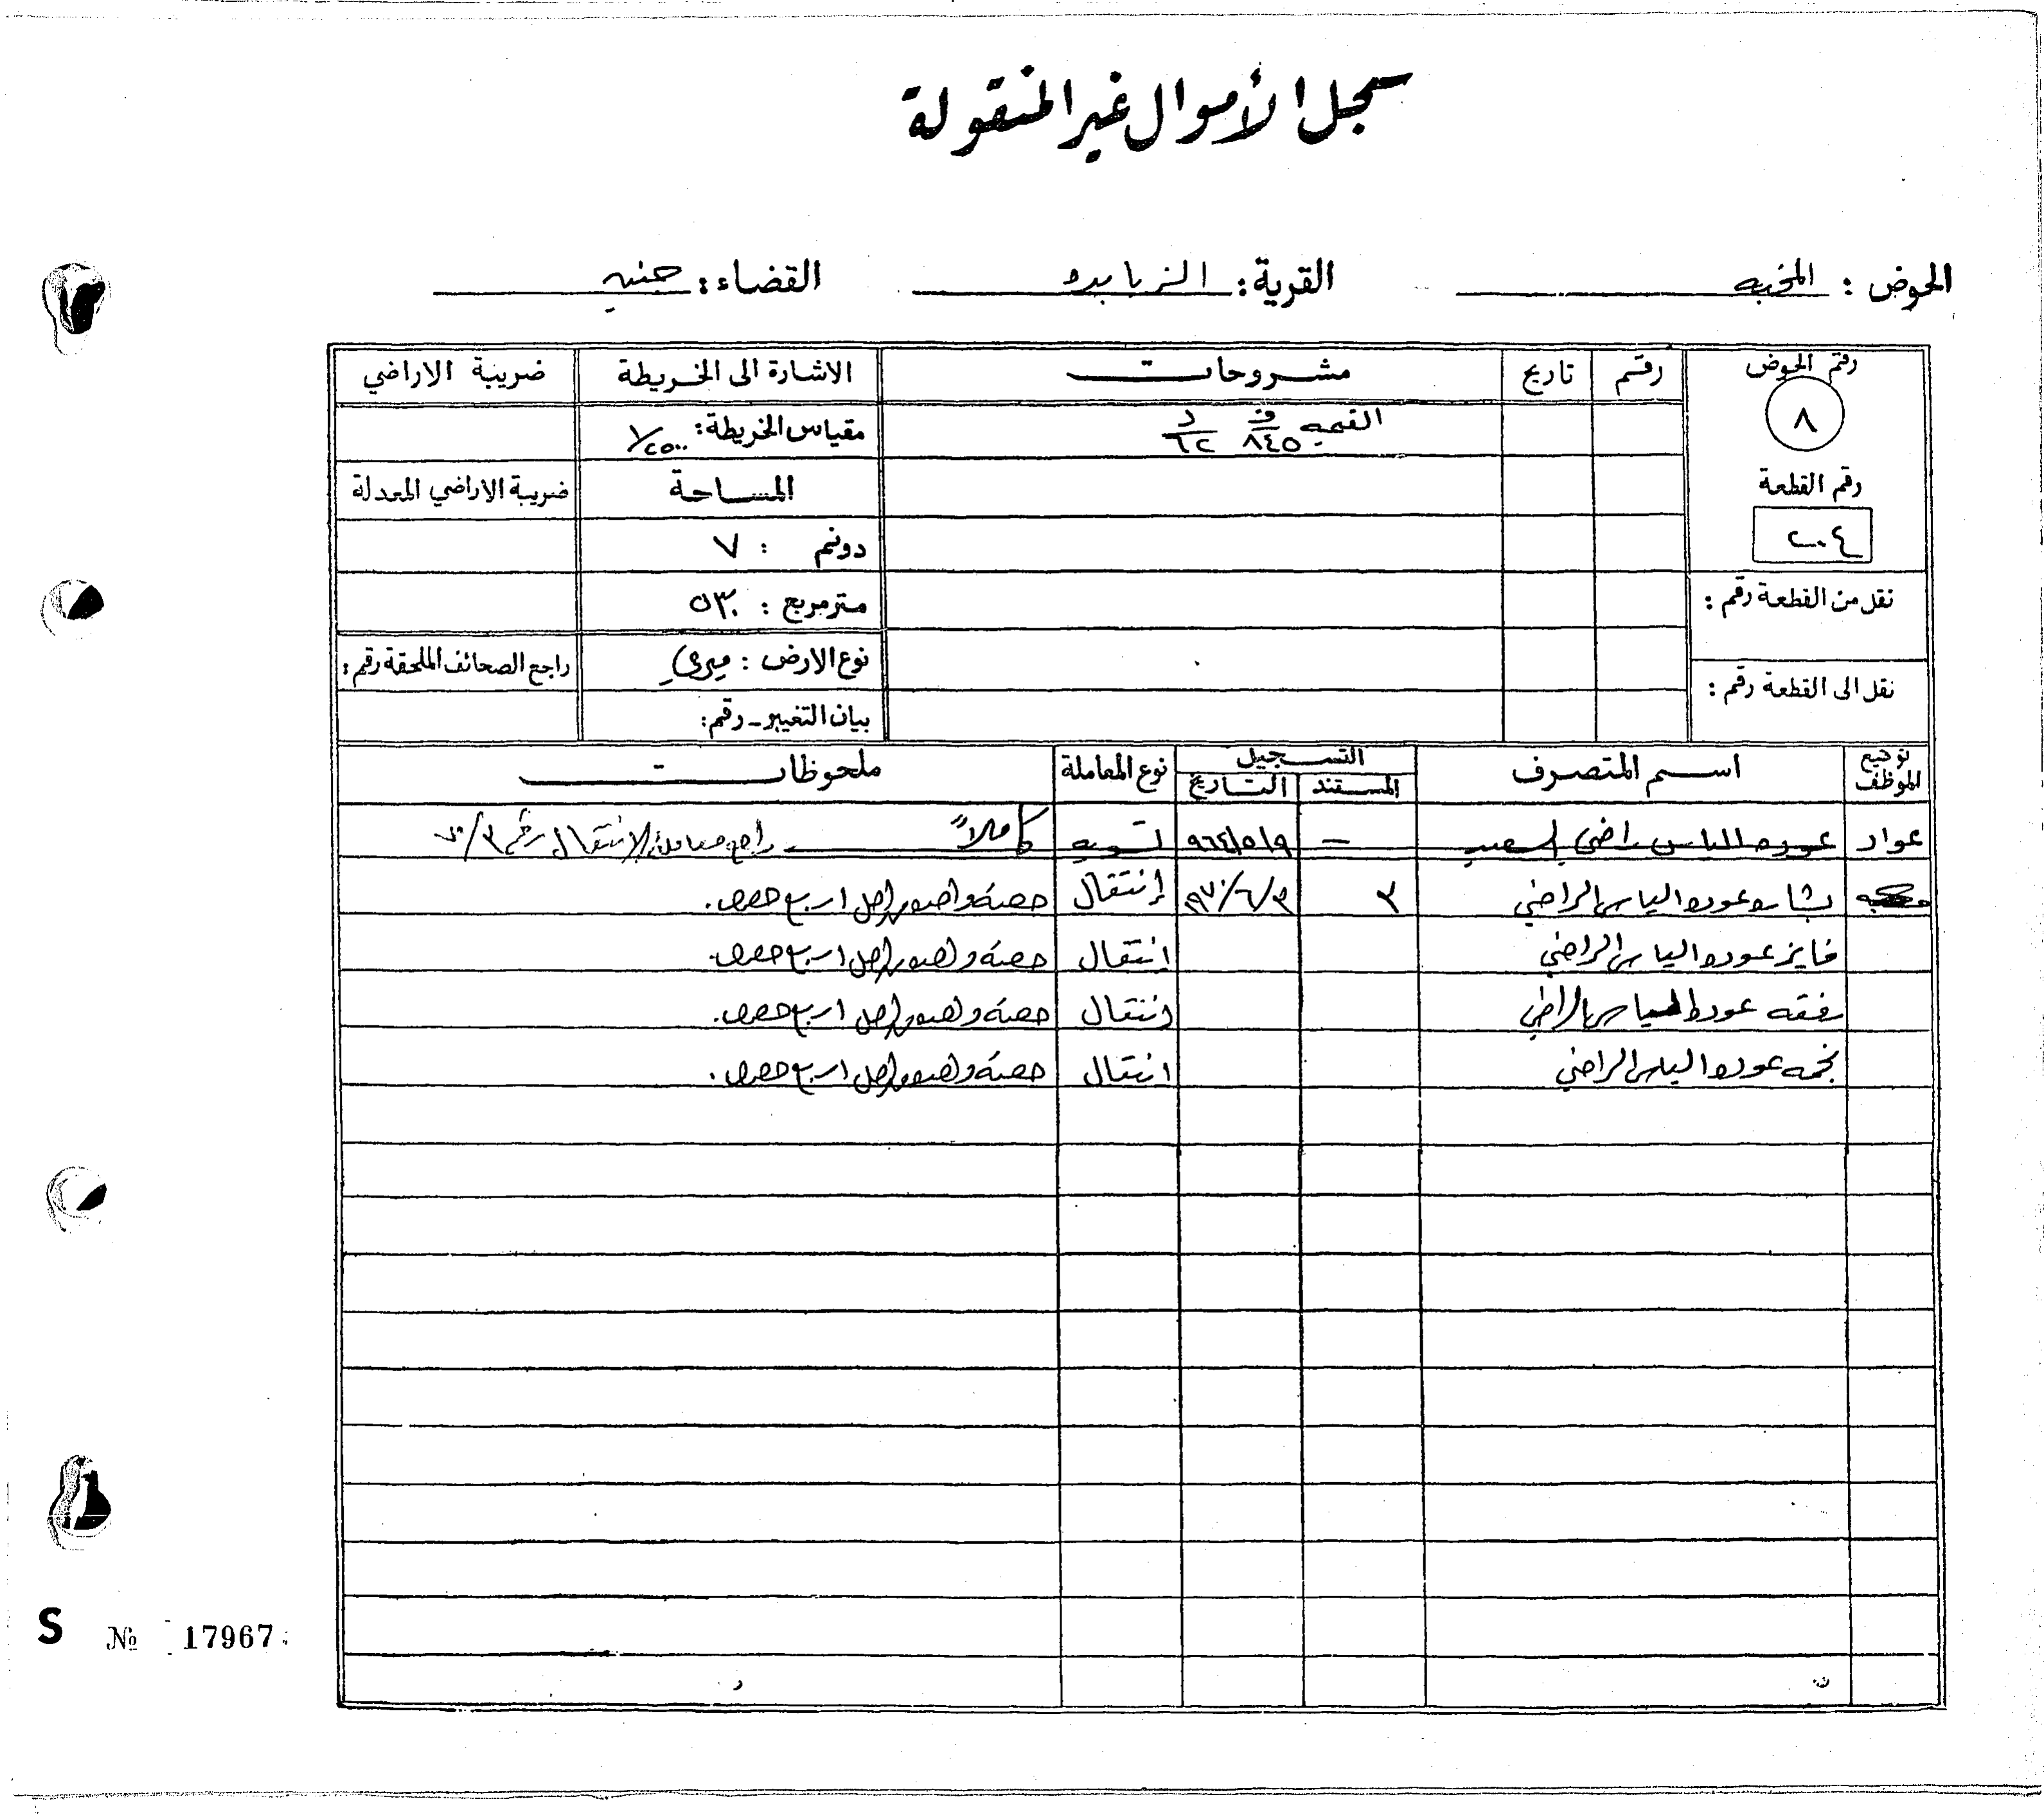 سجل الأموال غير المنقولة
الحوض : المخبه القرية: الزبابده القضاء: جنين
رقم الحوض رقم تاريخ مشروحات الاشارة الى الخريطة ضريبة الاراضي
٨ القيمه ف ٨٤٥ د ٦٢ مقياس الخريطة: ١/٢٥٠٠
رقم القطعة المساحة ضريبة الاراضي المعدلة
٢٠٠٤ دونم : ٧
نقل من القطعة رقم : متر مربع : ٥٣٠
نوع الارض : ميري راجع الصحائف الملحقة رقم :
نقل الى القطعة رقم : بيان التغيير - رقم:
توقيع الموظف اسم المتصرف التسجيل نوع المعاملة ملحوظات
المستند التاريخ
عواد عوده الياس راضي السعيد — ٩٦٤/٥/٩ تسويه كاملاً راجع معاملة الانتقال رقم ٧٠/٣
بشاره عوده الياس الراضي ٣ ٩٧٠/٦/٣ إنتقال حصة واحدة من اصل اربع حصص.
فايز عوده الياس الراضي انتقال حصة واحدة من اصل اربع حصص.
رفقه عوده الياس الراضي انتقال حصة واحدة من اصل اربع حصص.
نجمه عوده الياس الراضي انتقال حصة واحدة من اصل اربع حصص.
S № 17967